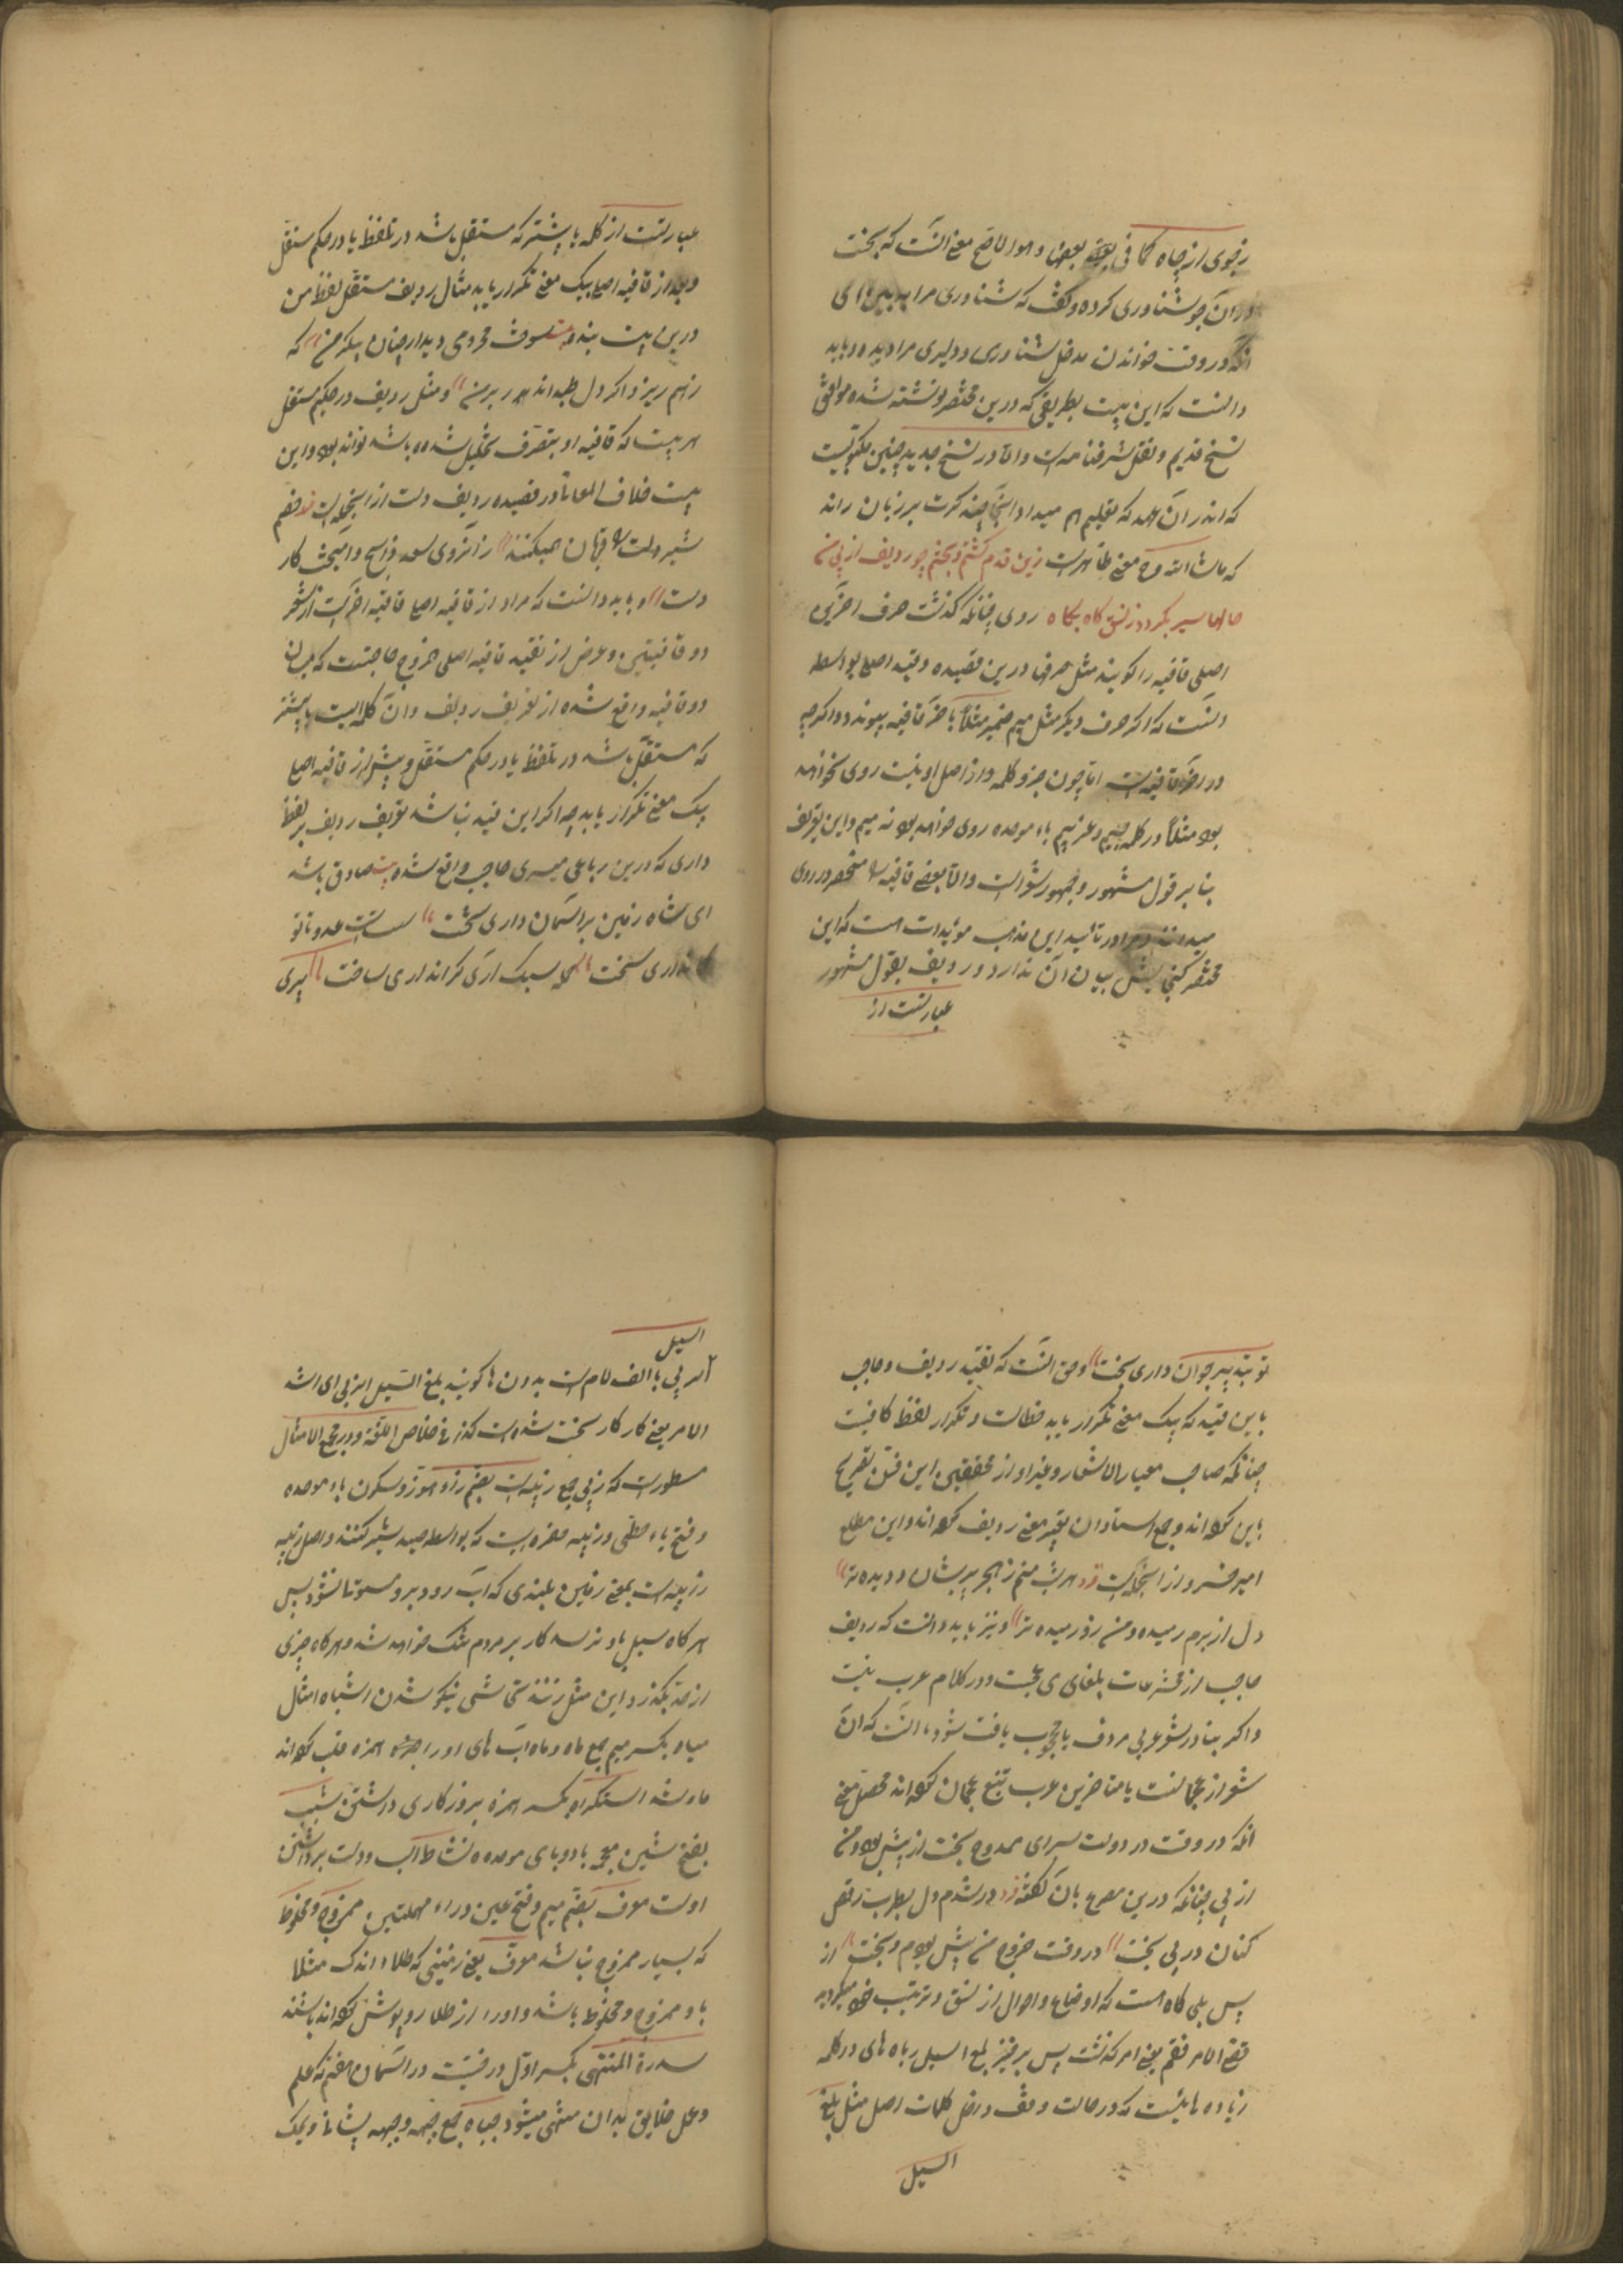 زجوی از چاه کما فی بعضها و هو الاصح معنی آنست که بخت
در آن جو شناوری کرده و گفت که شناوری مرا به بین ای
آنکه در وقت خواندن مدخل شناوری و دلیری مرا دیده و باید
دانست که این بیت بطریقی که درین مختصر نوشته شده موافق
نسخ قدیم و نقل شرفنامه است و الا در نسخ جدید چنین مکتوبست
که اندر آن عهد که تعلیم هم میداد اینجا چند کرت بر زبان راند
که ماشاءالله و معنی ظاهر است زین قدم گشتم و بختم چو ردیف از پی من
حالها سیر بگردد ز نسق گاه بگاه روی چنانکه گذشت حرف آخرین
اصلی قافیه را گویند مثل حرف ها درین قصیده و قید اصلی بواسطه
آنست که اگر حرف دیگر مثل میم ضمیر مثلاً بآخر قافیه پیوندد و اگرچه
در آخر قافیه است اما چون جزو کلمه و از اصل او نیست روی نخواهد
بود مثلاً در کلمه باء موحده روی خواهد بود نه میم و این تعریف
بنابر قول مشهور و جمهور شعراست و الا بعضی قافیه را منحصر در روی
میدانند و در تأیید این مذهب مؤیدات هست که این
مختصر گنجایش بیان آن ندارد و ردیف بقول مشهور
عبارتست از
عبارتست از کلمه یا بیشتر که مستقل باشد در تلفظ یا در حکم مستقل
و بعد از قافیه اصلی بیک معنی تکرار یابد مثال ردیف مستقل لفظ من
درین بیت بنده بسوخت محرومی دیدار چنان پیکر من که
ز هم ریزد اگر دل طپد اندر بر من و مثل ردیف در حکم مستقل
هر بیت که قافیه او بتصرف تحلیل شده باشد تواند بود و این
بیت خلاف المعانا در قصیده ردیف دست از اینجمله است زخم
شیر دلت را قهرمان همیکند از آنروی سعد ذابح و امیخت کار
دست و باید دانست که مراد از قافیه اصلی قافیه آخر است از شعر
دو قافیتین و غرض از تقید قافیه اصلی خروج حاجبست که میان
دو قافیه واقع شده از تعریف ردیف و آن کلمه ایست یا بیشتر
که مستقل باشد در تلفظ یا در حکم مستقل و پیش از قافیه اصلی
بیک معنی تکرار یابد چه اگر این قید نباشد تعریف ردیف بر لفظ
داری که درین رباعی میری حاجب واقع شده صادق باشد
ای شاه زمین بر آسمان داری تخت سست است عدو تا تو
کمان داری سخت حمله سبک آری و گران داری ساخت پیری
تو بتدبیر جوان داری بخت و حق آنست که تقید ردیف و حاجب
باین قید که بیک معنی تکرار یابد خطاست و تکرار لفظ کافیست
چنانکه صاحب معیار الاشعار و غیر او از محققین این فن تصریح
باین کرده اند و جمع استادان تغییر معنی ردیف کرده اند و این مطلع
امیر خسرو از اینجمله است هر شب منم ز هجر پریشان و دیده تر
دل از برم رمیده و من زو رمیده تر و نیز باید دانست که ردیف
حاجب از مخترعات بلغای عجمست و در کلام عرب نیست
و اگر بنادر شعر عربی مردف یا محجوب یافت شود آنست که آن
شعر از عجمانست یا متأخرین عرب تتبع عجمان کرده اند محصل معنی
آنکه در وقت در دولت سرای ممدوح بخت از پیش بود و من
از پی چنانکه درین مصرع بآن گفته در شدم دل بطرب رقص
کنان در پی بخت در وقت خروج من پیش بودم و بخت از
پس بلی گاه است که اوضاع و احوال از نسق و ترتیب خود میگردد
قضی الامر فقم یعنی امر گذشت پس برخیز بلغ السیل زباه های در کلمه
زباه هائیست که در حالت وقف در آخر کلمات اصل مثل بلغ
السیل
السیل
الزبی با الف لام است بدون ها گویند بلغ السیل الزبی ای اشتد
الامر یعنی کار کار سخت شده است کذا فی خلاص اللغة و در مجمع الامثال
مسطور است که زبی جمع زبیه است بضم زاء هوز و سکون باء موحده
و فتح یاء حطی و زبیه حفره ایست که بواسطه صید شیر کنند و اصل زبیه
زبیه است بمعنی زمین بلندی که آب رود برو مستوتا نشود پس
هر گاه سیل باو رسد کار بر مردم تنگ خواهد شد و هر گاه چیزی
از حد بگذرد این مثل زنند تحاشی نیکو شدن اشباه امثال
میاه بکسر میم جمع ماء و ماء آب های او را همزه قلب کرده اند
استکراء بکسر همزه بروزگاری داشتن شبب
بفتح شین معجمه با دو بای موحده نشاط اسب و دست برداشتن
اوست معرف بضم میم و فتح عین و راء مهملتین ممزوج و مخلوط
که بسیار ممزوج نباشد معرف یعنی زمینی که طلاء اندک مثلا
با او ممزوج و مخلوط باشد و او را از طلا روپوش کرده اند باشند
سدرة المنتهی بکسر اول درختیست در آسمان هفتم که علم
و عمل خلایق بدان منتهی میشود جباه جمع جبهه و جبهه پیشانی و یمک